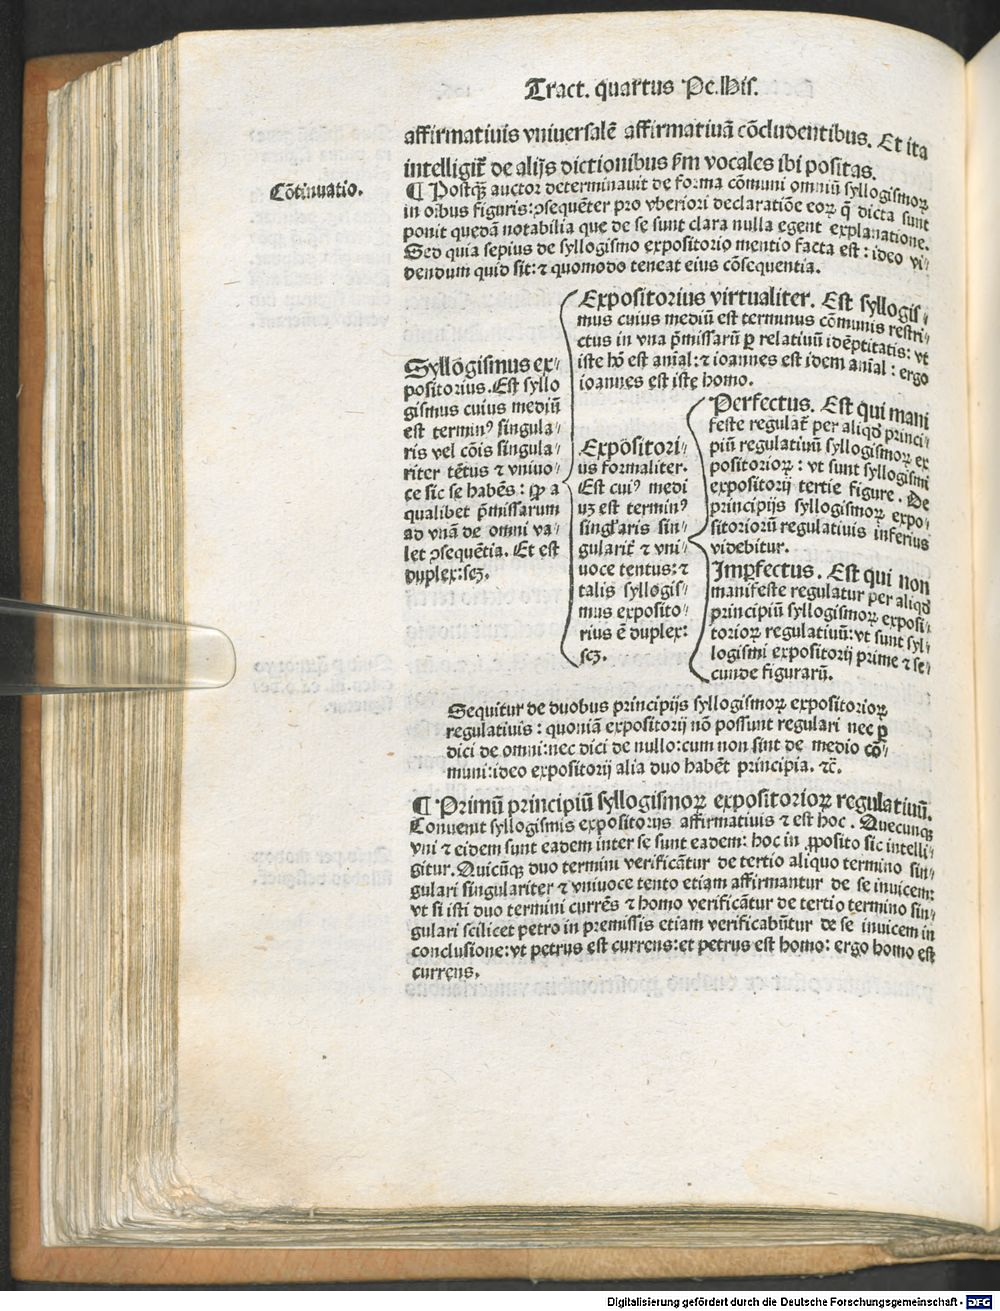 Tract. quartus Pe. His.
affirmatiuis vniuersalē affirmatiuā cōcludentibus. Et ita
intelligit̄ de alijs dictionibus ẜm vocales ibi positas.
Cōtinuatio.
¶ Postqꝫ auctor determinauit de forma cōmuni omniū syllogismoꝝ
in oibus figuris: ꝯsequēter pro vberiori declaratiōe eoꝝ q̄ dicta sunt
ponit quedā notabilia que de se sunt clara nulla egent explanatione.
Sed quia sepius de syllogismo expositorio mentio facta est: ideo vi⸗
dendum quid sit: ⁊ quomodo teneat eius cōsequentia.
Syllogismus ex⸗
positorius. Est syllo
gismus cuius mediū
est terminꝰ singula⸗
ris vel cōis singula⸗
riter tētus ⁊ vniuo⸗
ce sic se habēs: ꝙ a
qualibet p̄missarum
ad vnā de omni va⸗
let ꝯsequētia. Et est
duplex: scꝫ.
Expositorius virtualiter. Est syllogis⸗
mus cuius mediū est terminus cōmunis restri⸗
ctus in vna p̄missarū ꝑ relatiuū idēptitatis: vt
iste hō est anīal: ⁊ ioannes est idem anīal: ergo
ioannes est iste homo.
Expositori⸗
us formaliter.
Est cuiꝰ medi
uꝫ est terminꝰ
singl'aris sin⸗
gularit̄ ⁊ vni⸗
uoce tentus: ⁊
talis syllogis⸗
mus exposito⸗
rius ē duplex:
scꝫ.
Perfectus. Est qui mani
feste regulat̄ per aliqd̄ princi⸗
piū regulatiuū syllogismoꝝ ex
positorioꝝ: vt sunt syllogismi
expositorij tertie figure. De
principijs syllogismoꝝ expo⸗
sitoriorū regulatiuis inferius
videbitur.
Imꝑfectus. Est qui non
manifeste regulatur per aliqd̄
principiū syllogismoꝝ exposi⸗
torioꝝ regulatiuū: vt sunt syl⸗
logismi expositorij prime ⁊ se⸗
cunde figurarū.
Sequitur de duobus principijs syllogismoꝝ expositorioꝝ
regulatiuis: quoniā expositorij nō possunt regulari nec ꝑ
dici de omni: nec dici de nullo: cum non sint de medio cō⸗
muni: ideo expositorij alia duo habēt principia. ⁊c̄.
¶ Primū principiū syllogismoꝝ expositorioꝝ regulatiuū.
Conuenit syllogismis expositorijs affirmatiuis ⁊ est hoc. Quecunqꝫ
vni ⁊ eidem sunt eadem inter se sunt eadem: hoc in ꝓposito sic intelli⸗
gitur. Quicūqꝫ duo termini verificātur de tertio aliquo termino sin⸗
gulari singulariter ⁊ vniuoce tento etiam affirmantur de se inuicem:
vt si isti duo termini currēs ⁊ homo verificātur de tertio termino sin⸗
gulari scilicet petro in premissis etiam verificabūtur de se inuicem in
conclusione: vt petrus est currens: et petrus est homo: ergo homo est
currens.
Digitalisierung gefördert durch die Deutsche Forschungsgemeinschaft - DFG